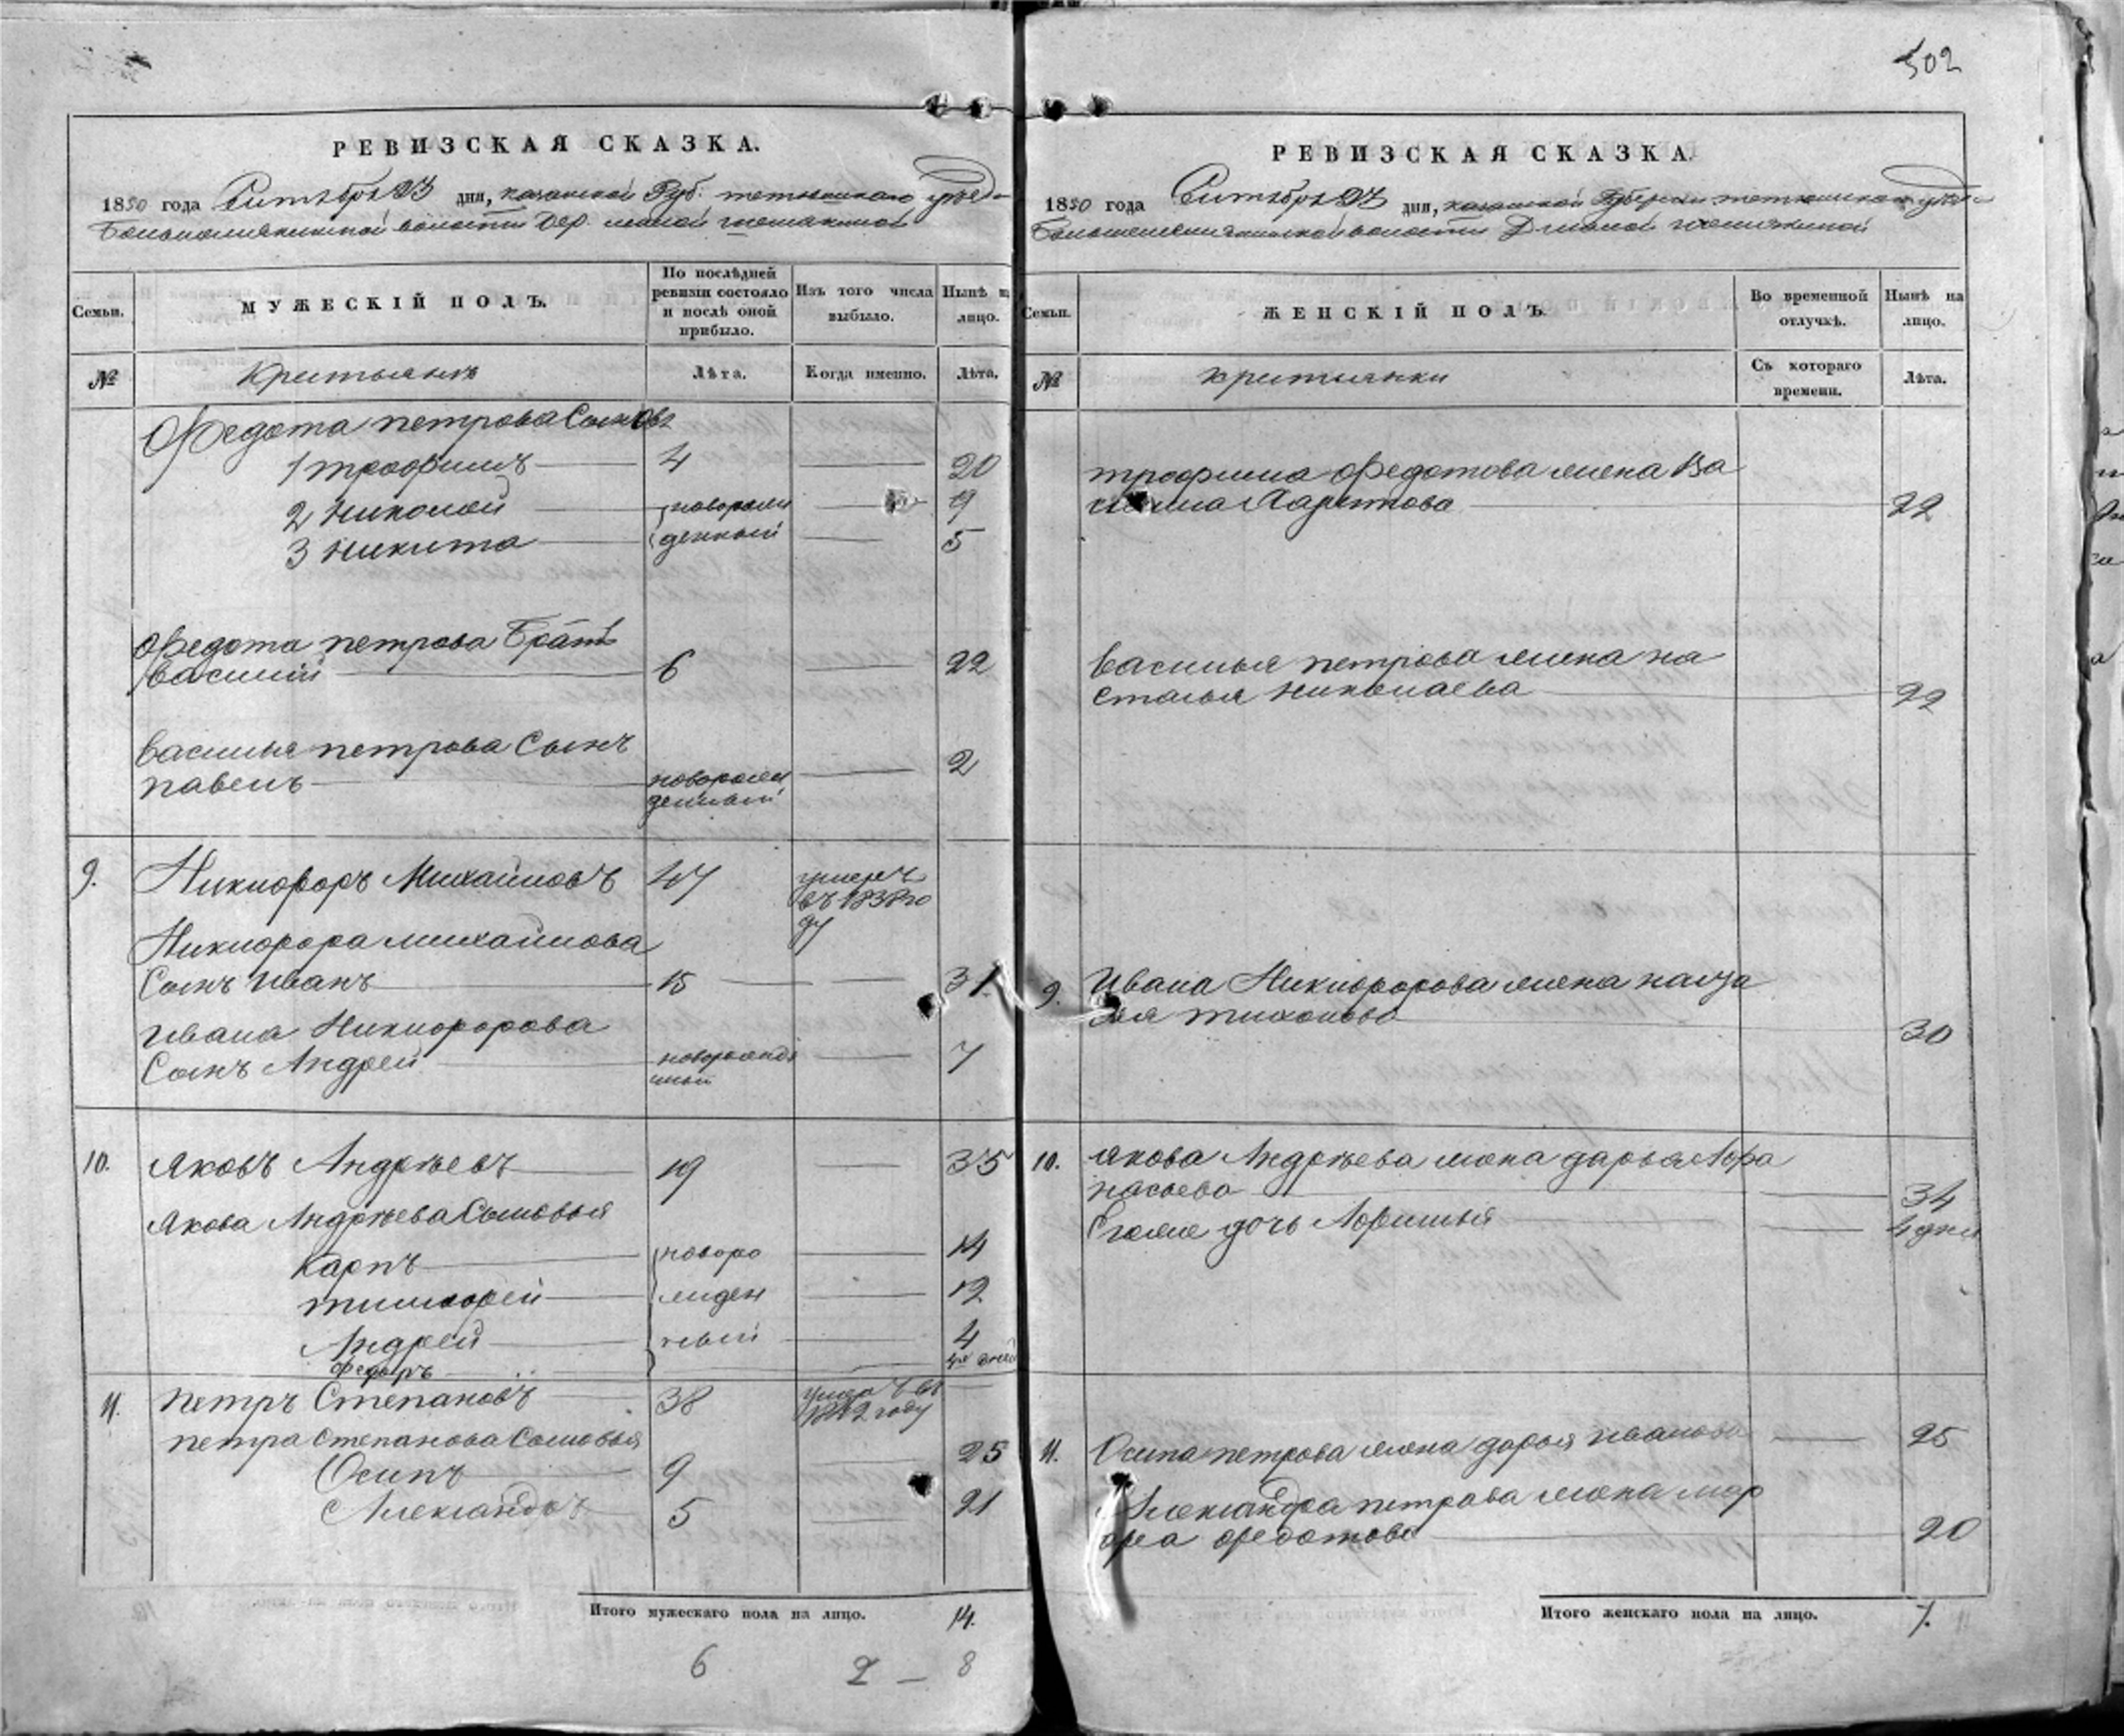 502
РЕВИЗСКАЯ СКАЗКА.
1850 года Сентября 23 дня, казанской Губ: тетюшскаго уезда
волости Дер. малой
Семьи.
МУЖЕСКІЙ ПОЛЪ.
По послѣдней ревизіи состояло и послѣ оной прибыло.
Изъ того числа выбыло.
Нынѣ на лицо.
№
Крестьянъ
Лѣта.
Когда именно.
Лѣта.
Федота петрова Сыновья
1 трофимъ 4 20
2 Николай новорожденный 9
3 Никита 5
Федота петрова Братъ
василій 6 22
василья петрова Сынъ
павелъ новорожденный 2
9. Никифоръ Михайловъ 47 умеръ въ 1838 году
Никифора михайлова
Сынъ Иванъ 15 31
Ивана Никифорова
Сынъ Андрей новорожденный 7
10. Яковъ Андрѣевъ 19 35
Якова Андрѣева Сыновья
Карпъ новорожденный 14
тимофей 12
Андрей 4
Федоръ дней
11. петръ Степановъ 38 умеръ въ 1842 году
петра Степанова Сыновья
Осипъ 9 25
Александръ 5 21
Итого мужескаго пола на лицо. 14.
6 2 — 8
РЕВИЗСКАЯ СКАЗКА.
1850 года Сентября 23 дня, казанской Губерніи тетюшскаго уезда
волости Д малой
Семьи.
ЖЕНСКІЙ ПОЛЪ.
Во временной отлучкѣ.
Нынѣ на лицо.
№
крестьянки
Съ котораго времени.
Лѣта.
трофима Федотова жена Ва
22
василья петрова жена на
сталья Николаева 22
9. Ивана Никифорова жена
тихонова 30
10. якова Андрѣева жена дарья Афа
насьева 34
Его же дочь Афимья 4 дни
11. Осипа петрова жена дарья иванова 25
Александра петрова жена мар
фа федотова 20
Итого женскаго пола на лицо. 7.